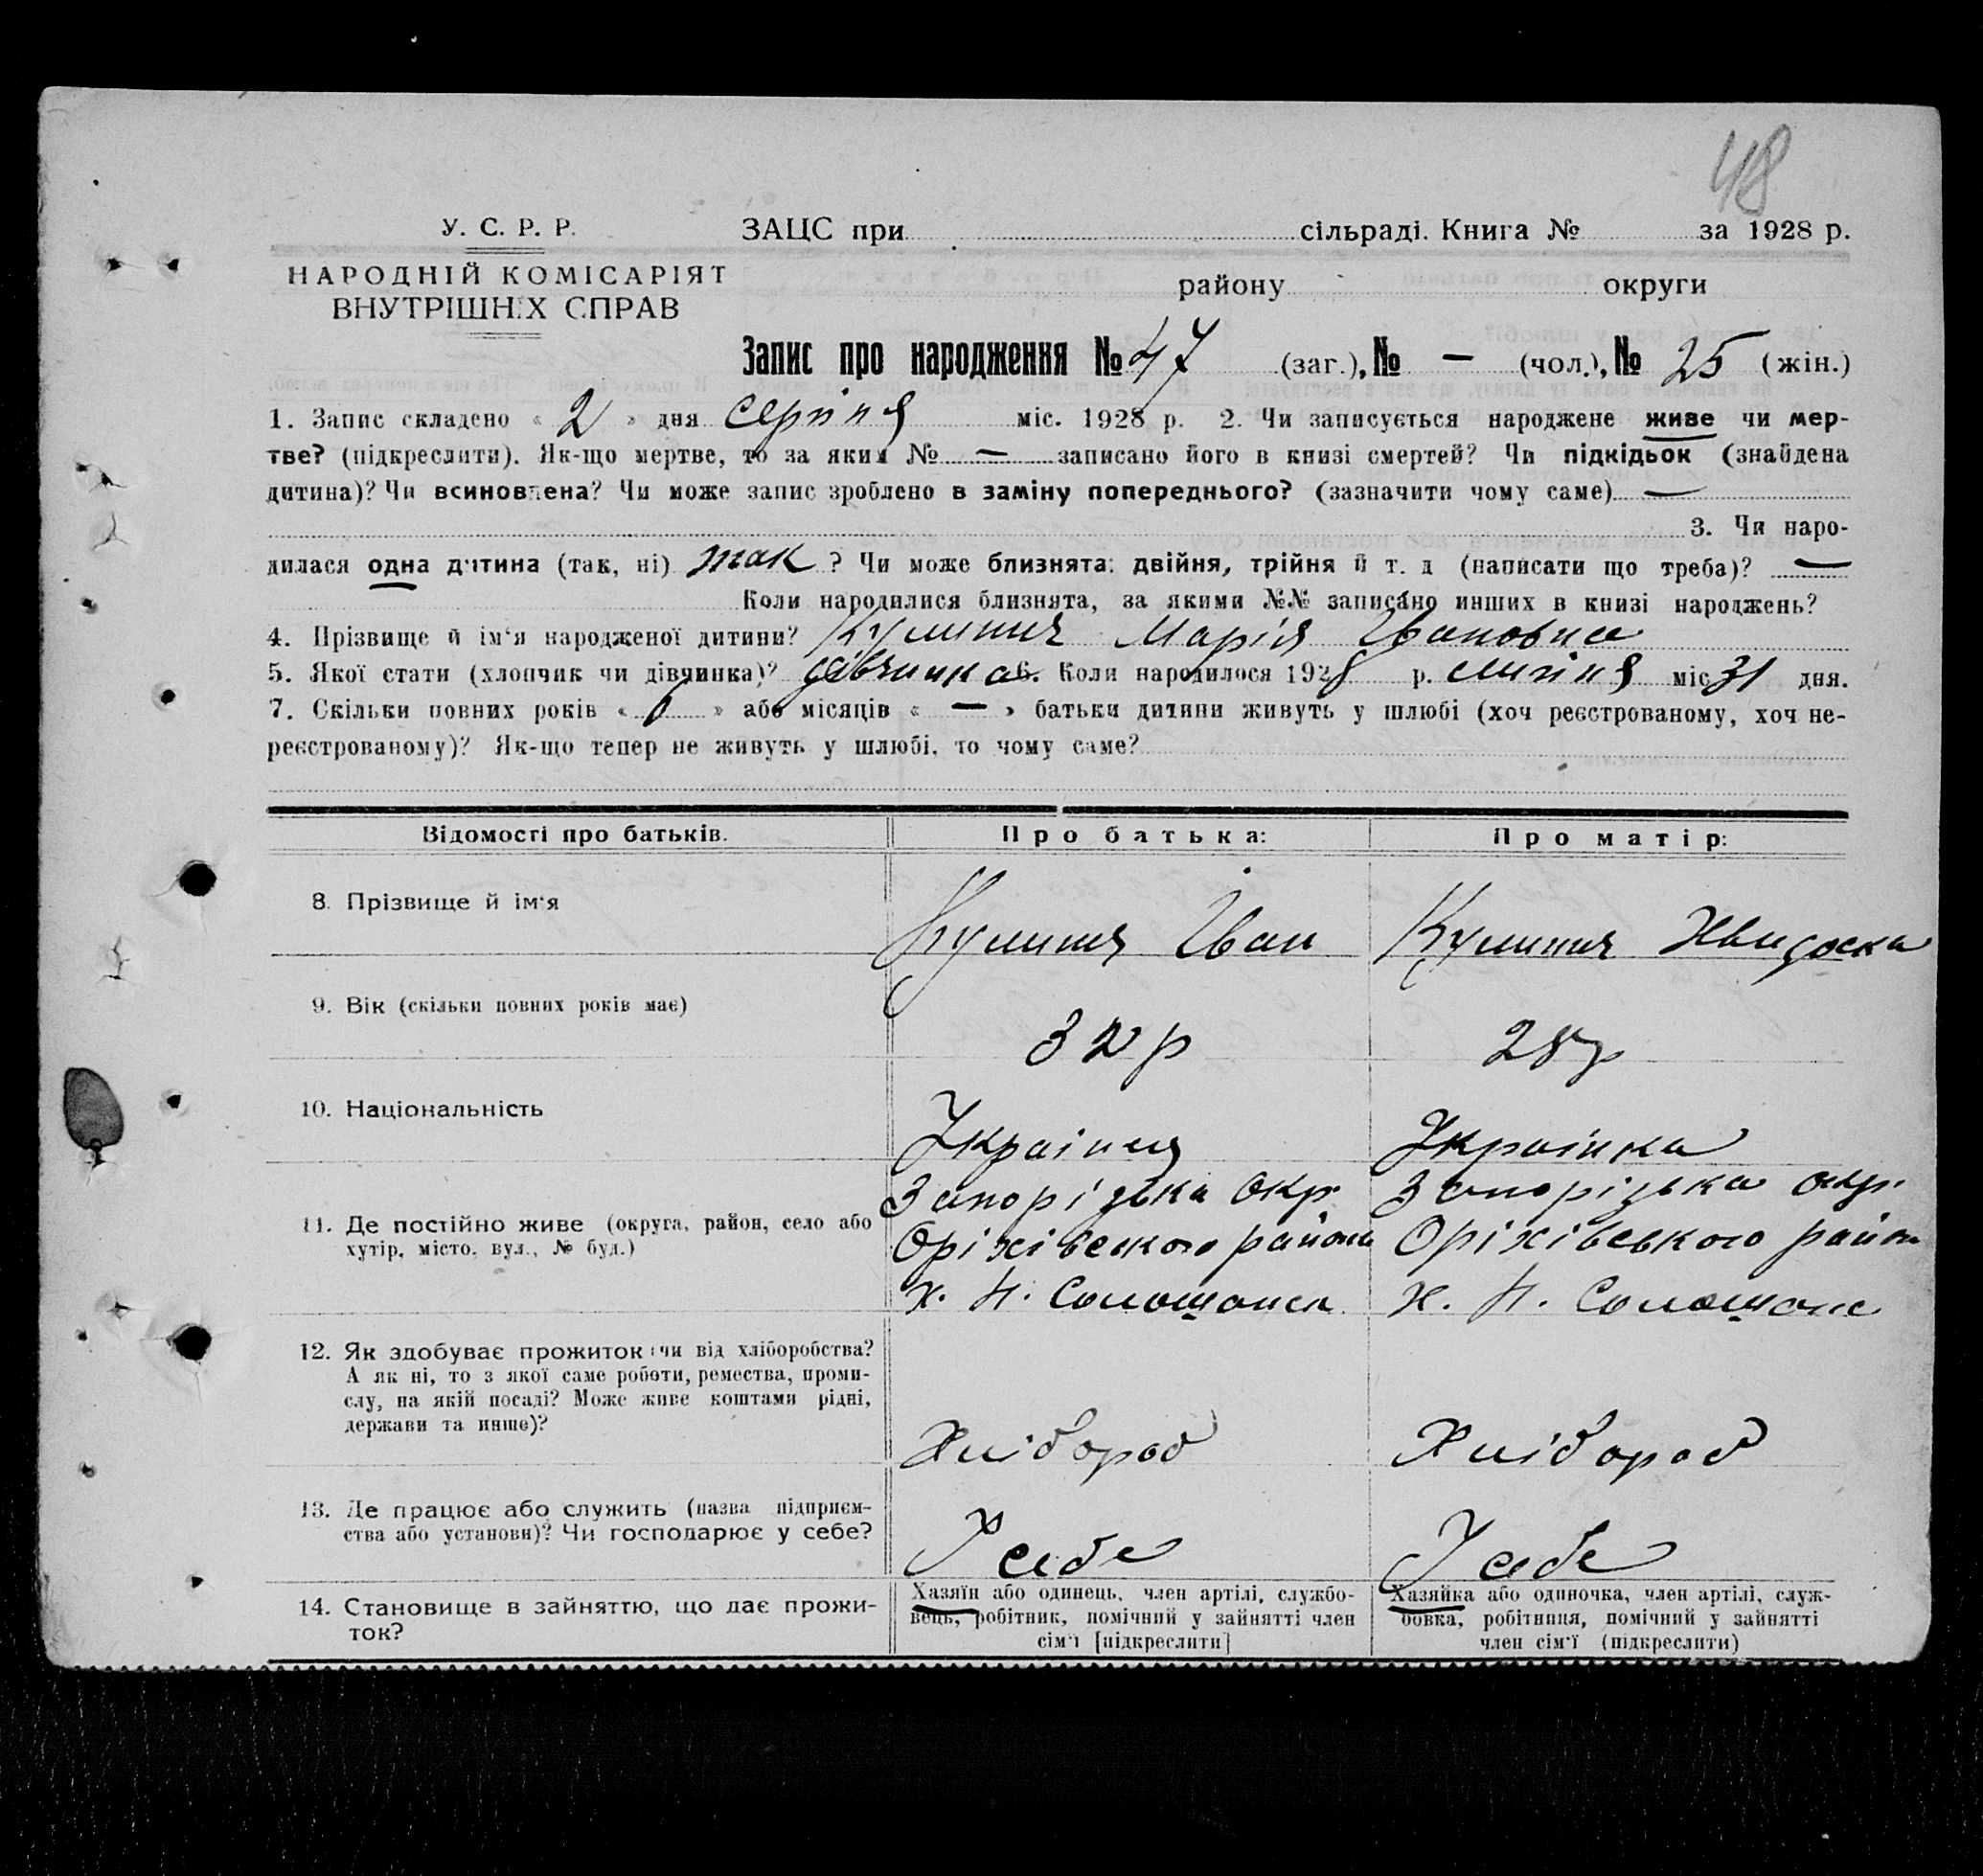 48
У. С. Р. Р.
ЗАЦС при сільраді. Книга № за 1928 р.
НАРОДНІЙ КОМІСАРІЯТ
ВНУТРІШНІХ СПРАВ
району округи
Запис про народження № 47 (заг.), № — (чол.), № 25 (жін.)
1. Запис складено « 2 » дня серпня міс. 1928 р. 2. Чи записується народжене живе чи мер-
тве? (підкреслити). Як-що мертве, то за яким № — записано його в книзі смертей? Чи підкідьок (знайдена
дитина)? Чи всиновлена? Чи може запис зроблено в заміну попереднього? (зазначити чому саме) —
3. Чи наро-
дилася одна дитина (так, ні) так ? Чи може близнята: двійня, трійня й т. д (написати що треба)? —
Коли народилися близнята, за якими №№ записано инших в книзі народжень?
4. Прізвище й ім'я народженої дитини? Кулинич Марія Івановна
5. Якої стати (хлопчик чи дівчинка)? дівчинка 6. Коли народилося 1928 р. липня міс 31 дня.
7. Скільки повних років « » або місяців « — » батьки дитини живуть у шлюбі (хоч реєстрованому, хоч не-
реєстрованому)? Як-що тепер не живуть у шлюбі, то чому саме?
Відомості про батьків.
Про батька:
Про матір:
8. Прізвище й ім'я
Кулинич Іван
Кулинич
9. Вік (скільки повних років має)
32 р
28 р
10. Національність
Українец
Українка
11. Де постійно живе (округа, район, село або
хутір, місто, вул., № буд.)
Запорізька Окр.
Оріхівського району
х. Н.
Запорізька окр.
Оріхівського район
х. Н.
12. Як здобуває прожиток: чи від хліборобства?
А як ні, то з якої саме роботи, ремества, проми-
слу, на якій посаді? Може живе коштами рідні,
держави та инше)?
Хлібороб
Хлібороб
13. Де працює або служить (назва підприєм-
ства або установи)? Чи господарює у себе?
У себе
У себе
14. Становище в зайняттю, що дає прожи-
ток?
Хазяїн або одинець, член артілі, службо-
вець, робітник, помічний у зайнятті член
сім'ї [підкреслити]
Хазяйка або одиночка, член артілі, служ-
бовка, робітниця, помічний у зайнятті
член сім'ї (підкреслити)